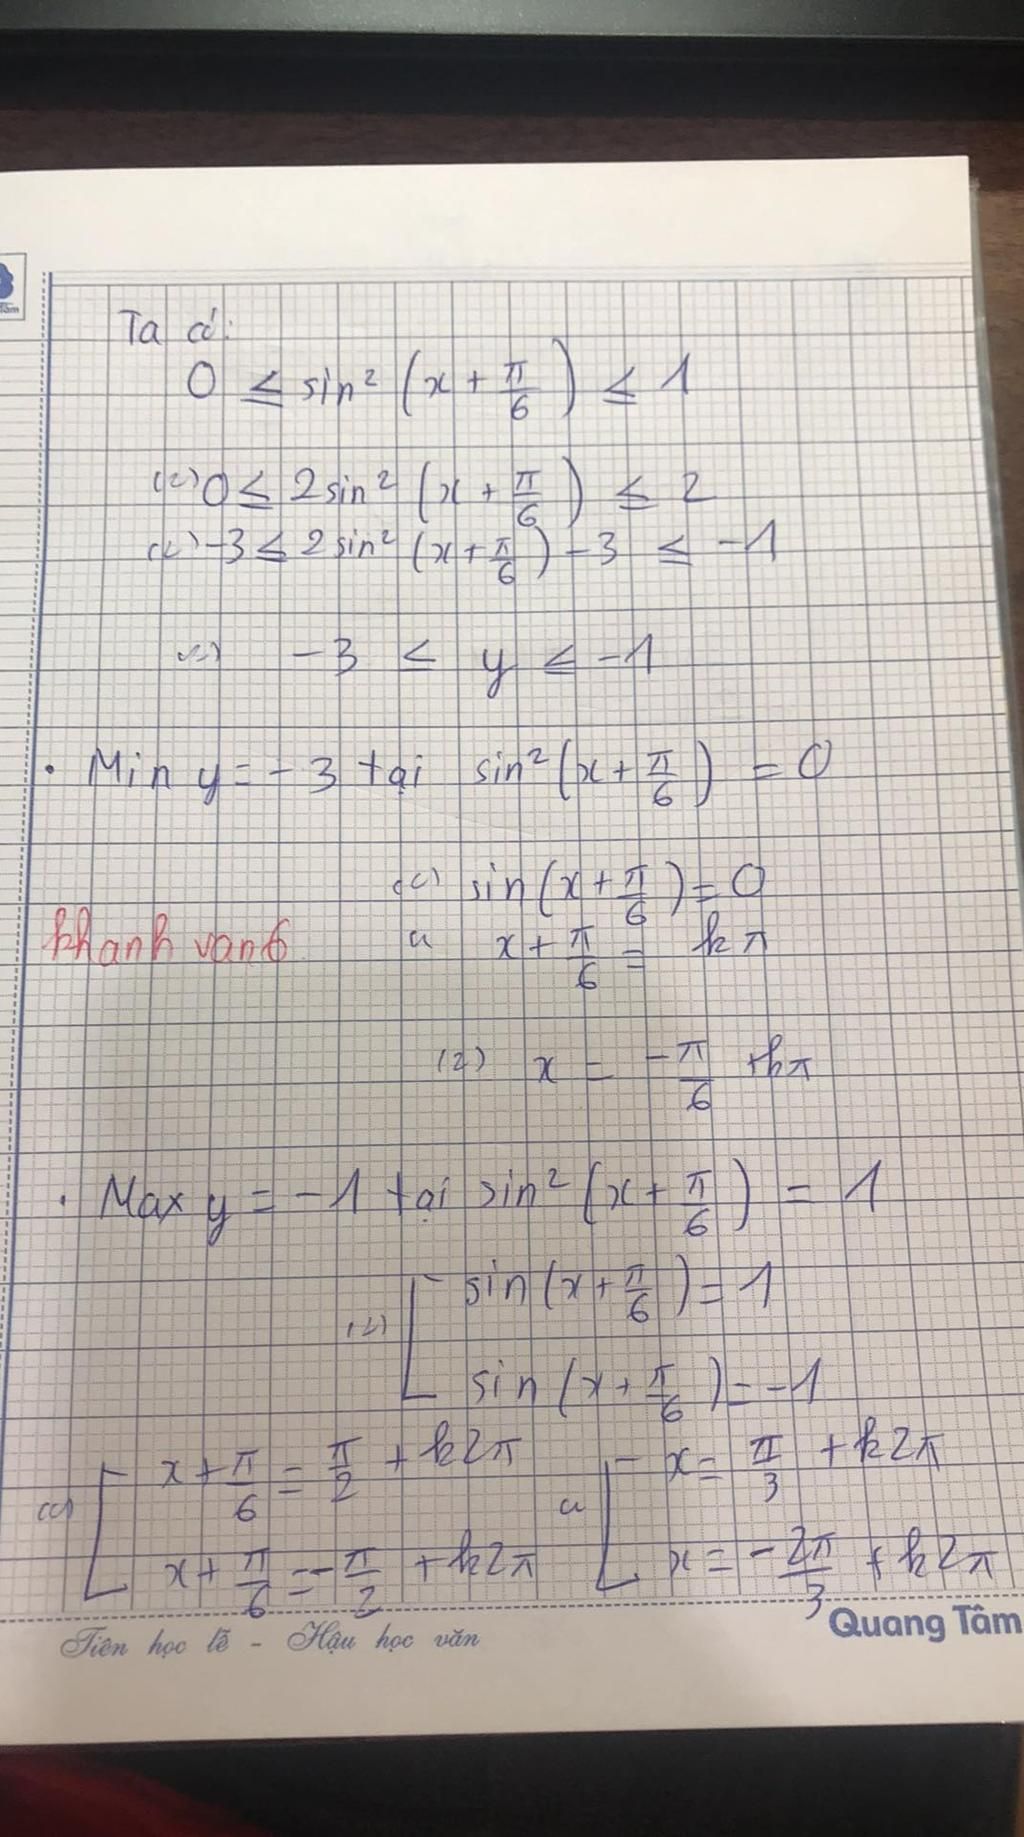 Ta có:
0 ≤ sin² (x + π/6) ≤ 1
(=) 0 ≤ 2sin² (x + π/6) ≤ 2
(=) -3 ≤ 2sin² (x + π/6) - 3 ≤ -1
(=) -3 ≤ y ≤ -1
• Min y = -3 tại sin² (x + π/6) = 0
(=) sin (x + π/6) = 0
khanh van6
x + π/6 = kπ
x = -π/6 + kπ
• Max y = -1 tại sin² (x + π/6) = 1
(=) [ sin (x + π/6) = 1
sin (x + π/6) = -1
(=) [ x + π/6 = π/2 + k2π [ x = π/3 + k2π
x + π/6 = -π/2 + k2π x = -2π/3 + k2π
Tiên học lễ - Hậu học văn
Quang Tâm